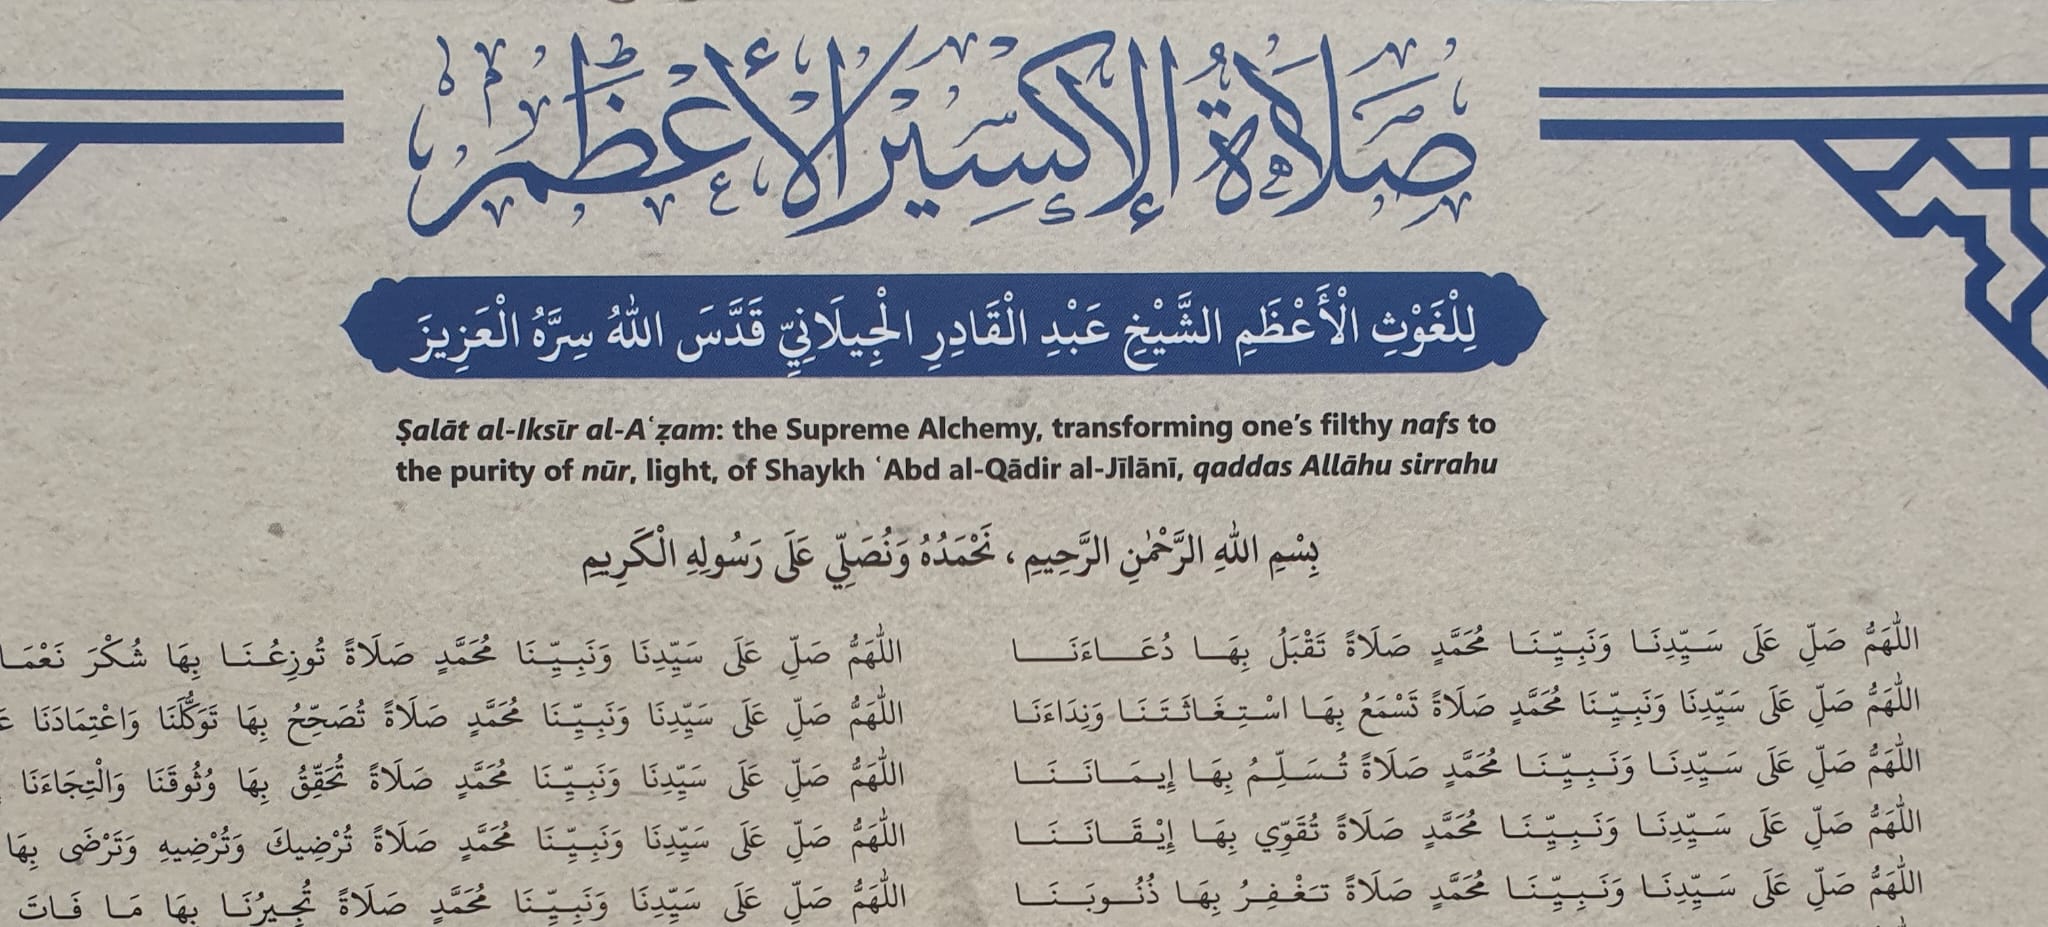 صَلَاةُ الإِكْسِيرِ الأَعْظَمِ
لِلْغَوْثِ الْأَعْظَمِ الشَّيْخِ عَبْدِ الْقَادِرِ الْجِيلَانِيِّ قَدَّسَ اللهُ سِرَّهُ الْعَزِيزَ
Ṣalāt al-Iksīr al-Aʿẓam: the Supreme Alchemy, transforming one’s filthy nafs to
the purity of nūr, light, of Shaykh ʿAbd al-Qādir al-Jīlānī, qaddas Allāhu sirrahu
بِسْمِ اللهِ الرَّحْمٰنِ الرَّحِيمِ ، نَحْمَدُهُ وَنُصَلِّي عَلَى رَسُولِهِ الْكَرِيمِ
اللّٰهُمَّ صَلِّ عَلَى سَيِّدِنَا وَنَبِيِّنَا مُحَمَّدٍ صَلَاةً تَقْبَلُ بِهَا دُعَاءَنَا
اللّٰهُمَّ صَلِّ عَلَى سَيِّدِنَا وَنَبِيِّنَا مُحَمَّدٍ صَلَاةً تَسْمَعُ بِهَا اسْتِغَاثَتَنَا وَنِدَاءَنَا
اللّٰهُمَّ صَلِّ عَلَى سَيِّدِنَا وَنَبِيِّنَا مُحَمَّدٍ صَلَاةً تُسَلِّمُ بِهَا إِيمَانَنَا
اللّٰهُمَّ صَلِّ عَلَى سَيِّدِنَا وَنَبِيِّنَا مُحَمَّدٍ صَلَاةً تُقَوِّي بِهَا إِيْقَانَنَا
اللّٰهُمَّ صَلِّ عَلَى سَيِّدِنَا وَنَبِيِّنَا مُحَمَّدٍ صَلَاةً تَغْفِرُ بِهَا ذُنُوبَنَا
اللّٰهُمَّ صَلِّ عَلَى سَيِّدِنَا وَنَبِيِّنَا مُحَمَّدٍ صَلَاةً تُوزِعُنَا بِهَا شُكْرَ نَعْمَا
اللّٰهُمَّ صَلِّ عَلَى سَيِّدِنَا وَنَبِيِّنَا مُحَمَّدٍ صَلَاةً تُصَحِّحُ بِهَا تَوَكُّلَنَا وَاعْتِمَادَنَا
اللّٰهُمَّ صَلِّ عَلَى سَيِّدِنَا وَنَبِيِّنَا مُحَمَّدٍ صَلَاةً تُحَقِّقُ بِهَا وُثُوقَنَا وَالْتِجَاءَنَا
اللّٰهُمَّ صَلِّ عَلَى سَيِّدِنَا وَنَبِيِّنَا مُحَمَّدٍ صَلَاةً تُرْضِيكَ وَتُرْضِيهِ وَتَرْضَى بِهَا
اللّٰهُمَّ صَلِّ عَلَى سَيِّدِنَا وَنَبِيِّنَا مُحَمَّدٍ صَلَاةً تُجِيرُنَا بِهَا مَا فَاتَ